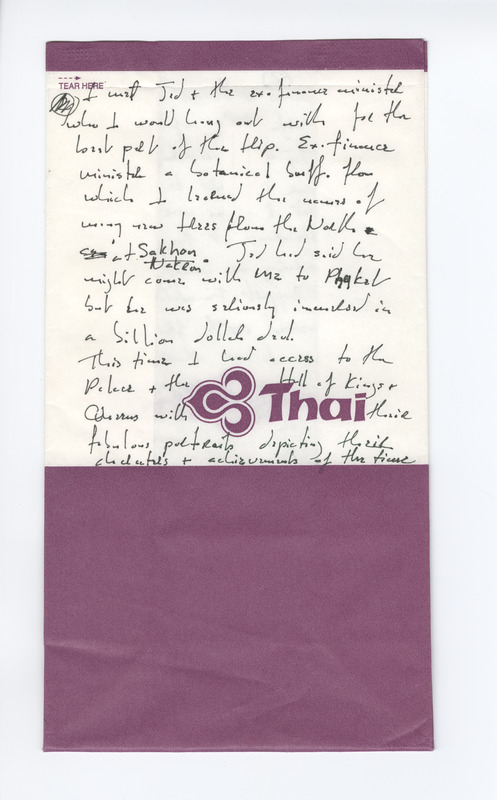 TEAR HERE
I met Jed + the ex. finance minister
who I would hang out with for the
best part of the trip. Ex. finance
minister a botanical buff. from
which I learned the names of
many new trees from the North
at Sakhon
Nakon. Jed had said he
might come with me to Phuket
but he was seriously immersed in
a billion dollar deal.
This time I had access to the
Palace + the Hall of Kings +
Queens with their
Thai
fabulous portraits depicting their
characters + achievements of the time